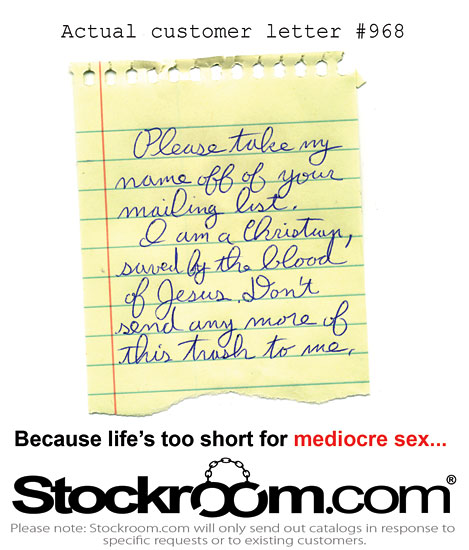 Actual customer letter #968
Please take my
name off of your
mailing list.
I am a Christian,
saved by the blood
of Jesus. Don't
send any more of
this trash to me.
Because life's too short for mediocre sex...
Stockroom.com®
Please note: Stockroom.com will only send out catalogs in response to
specific requests or to existing customers.